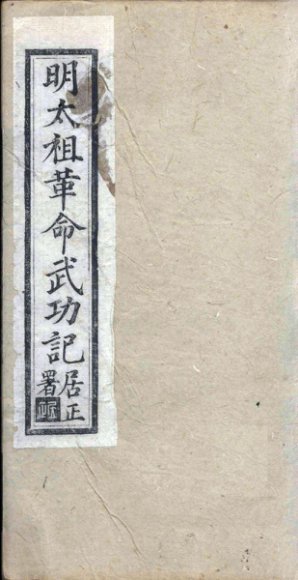 明太祖革命武功記
居正
署